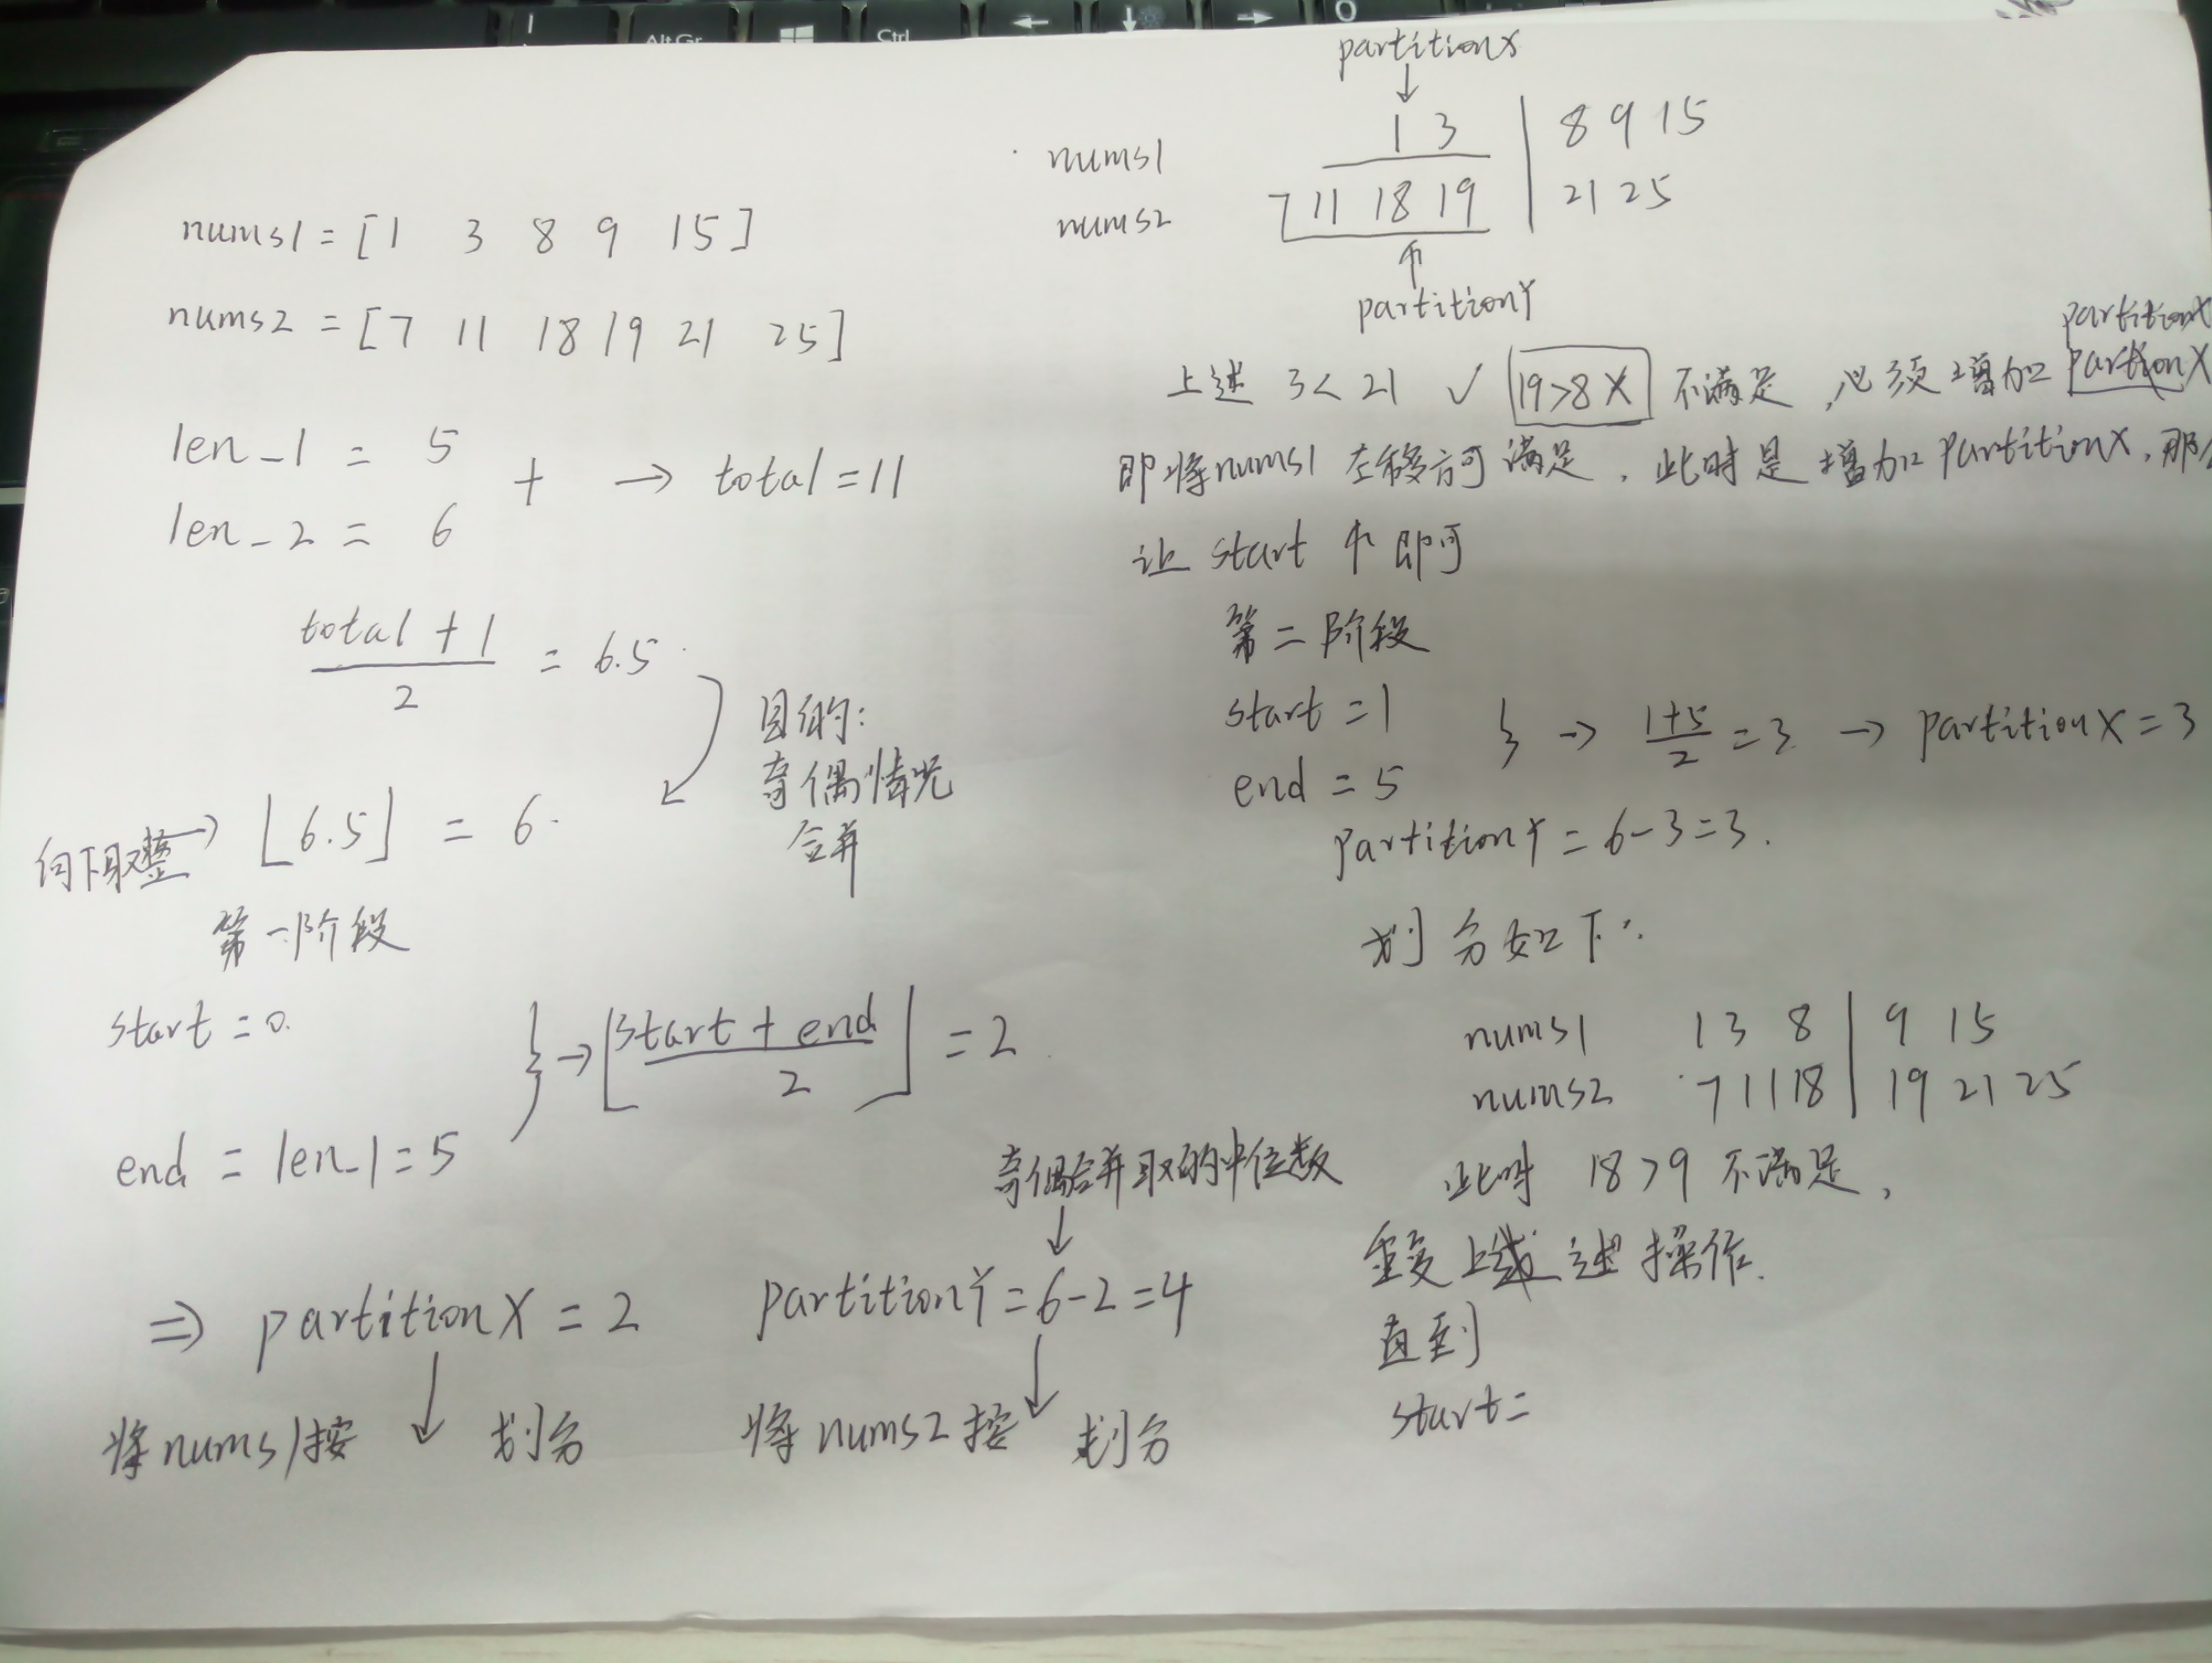 nums1 = [1 3 8 9 15]
nums2 = [7 11 18 19 21 25]
len_1 = 5
len_2 = 6
+ → total = 11
total + 1
2
= 6.5
目的:
奇偶情况
合并
向下取整 → ⌊6.5⌋ = 6.
第一阶段
start = 0.
end = len_1 = 5
} → ⌊start + end / 2⌋ = 2
奇偶合并取的中位数
↓
⇒ partitionX = 2 partitionY = 6-2 = 4
将nums1按 ↓ 划分 将nums2按 ↓ 划分
partitionX
↓
nums1 1 3 | 8 9 15
nums2 7 11 18 19 | 21 25
↑
partitionY
partitionX
上述 3 < 21 ✓ 19>8 X 不满足, 必须增加 partitionX
即将nums1 左移方可满足. 此时是增加partitionX, 那
让 start ↑ 即可
第二阶段
start = 1
end = 5
} → 1+5 / 2 = 3 → partitionX = 3
partitionY = 6-3=3.
划分如下:
nums1 1 3 8 | 9 15
nums2 7 11 18 | 19 21 25
此时 18>9 不满足,
重复上述操作.
直到
start =
Alt Gr
Ctrl
←
↓
→
0